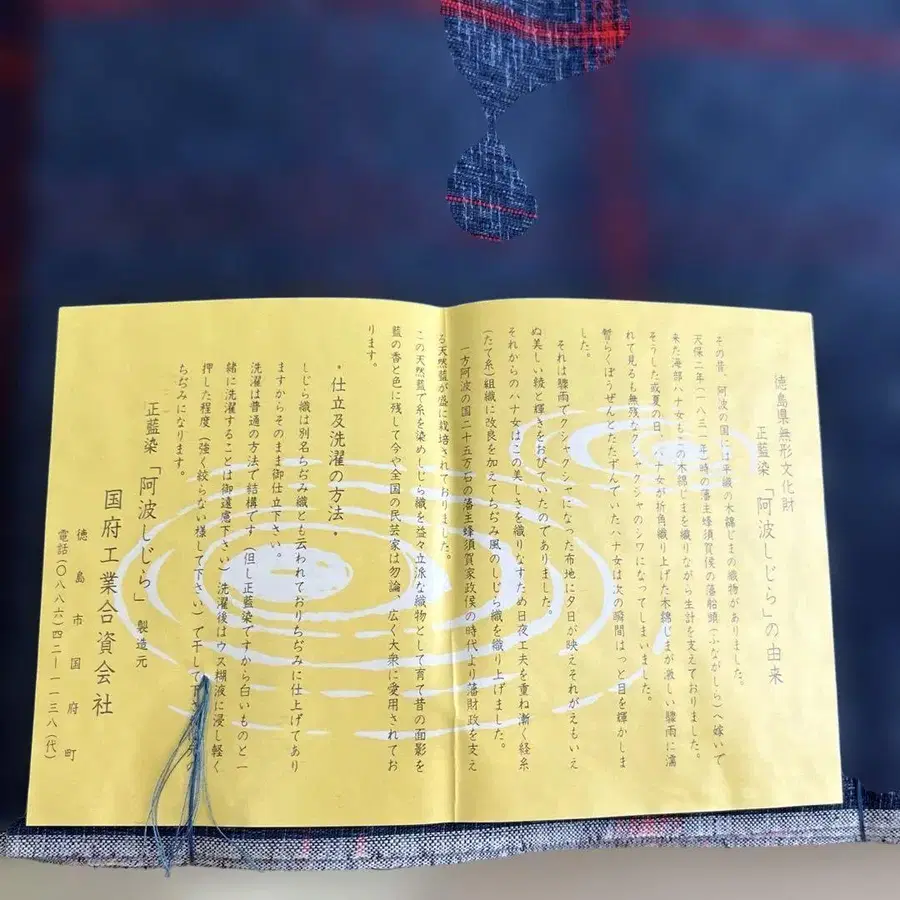 徳島県無形文化財
正藍染「阿波しじら」の由来
その昔、阿波の国には平織の木綿じまの織物がありました。
天保二年(一八三一年)時の藩主蜂須賀侯の藩船頭(ふながしら)へ嫁いで
来た海部ハナ女もこの木綿じまを織りながら生計を支えておりました。
そうした或夏の日、ハナ女が折角織り上げた木綿じまが激しい驟雨に濡
れて見るも無残なクシャクシャのシワになってしまいました。
暫らくぼうぜんとたたずんでいたハナ女は次の瞬間はっと目を輝かしま
した。
それは驟雨でクシャクシャになった布地に夕日が映えそれがえもいえ
ぬ美しい綾と輝きをおびていたのでありました。
それからのハナ女はこの美しさを織りなすため日夜工夫を重ね漸く経糸
(たて糸)組織に改良を加えてちぢみ風のしじら織を織り上げました。
一方阿波の国二十五万石の藩主蜂須賀家政侯の時代より藩財政を支え
る天然藍が盛に栽培されておりました。
この天然藍で糸を染めしじら織を益々立派な織物として育て昔の面影を
藍の香と色に残して今や全国の民芸家は勿論、広く大衆に愛用されてお
ります。
・仕立及洗濯の方法・
しじら織は別名ちぢみ織とも云われておりちぢみに仕上げてあり
ますからそのまま御仕立下さい。
洗濯は普通の方法で結構です(但し正藍染ですから白いものと一
緒に洗濯することは御遠慮下さい)洗濯後はウス糊液に浸し軽く
押した程度(強く絞らない様して下さい)で干して下
ちぢみになります。
正藍染「阿波しじら」製造元
国府工業合資会社
徳島市国府町
電話(〇八八六)四二—一一三八(代)